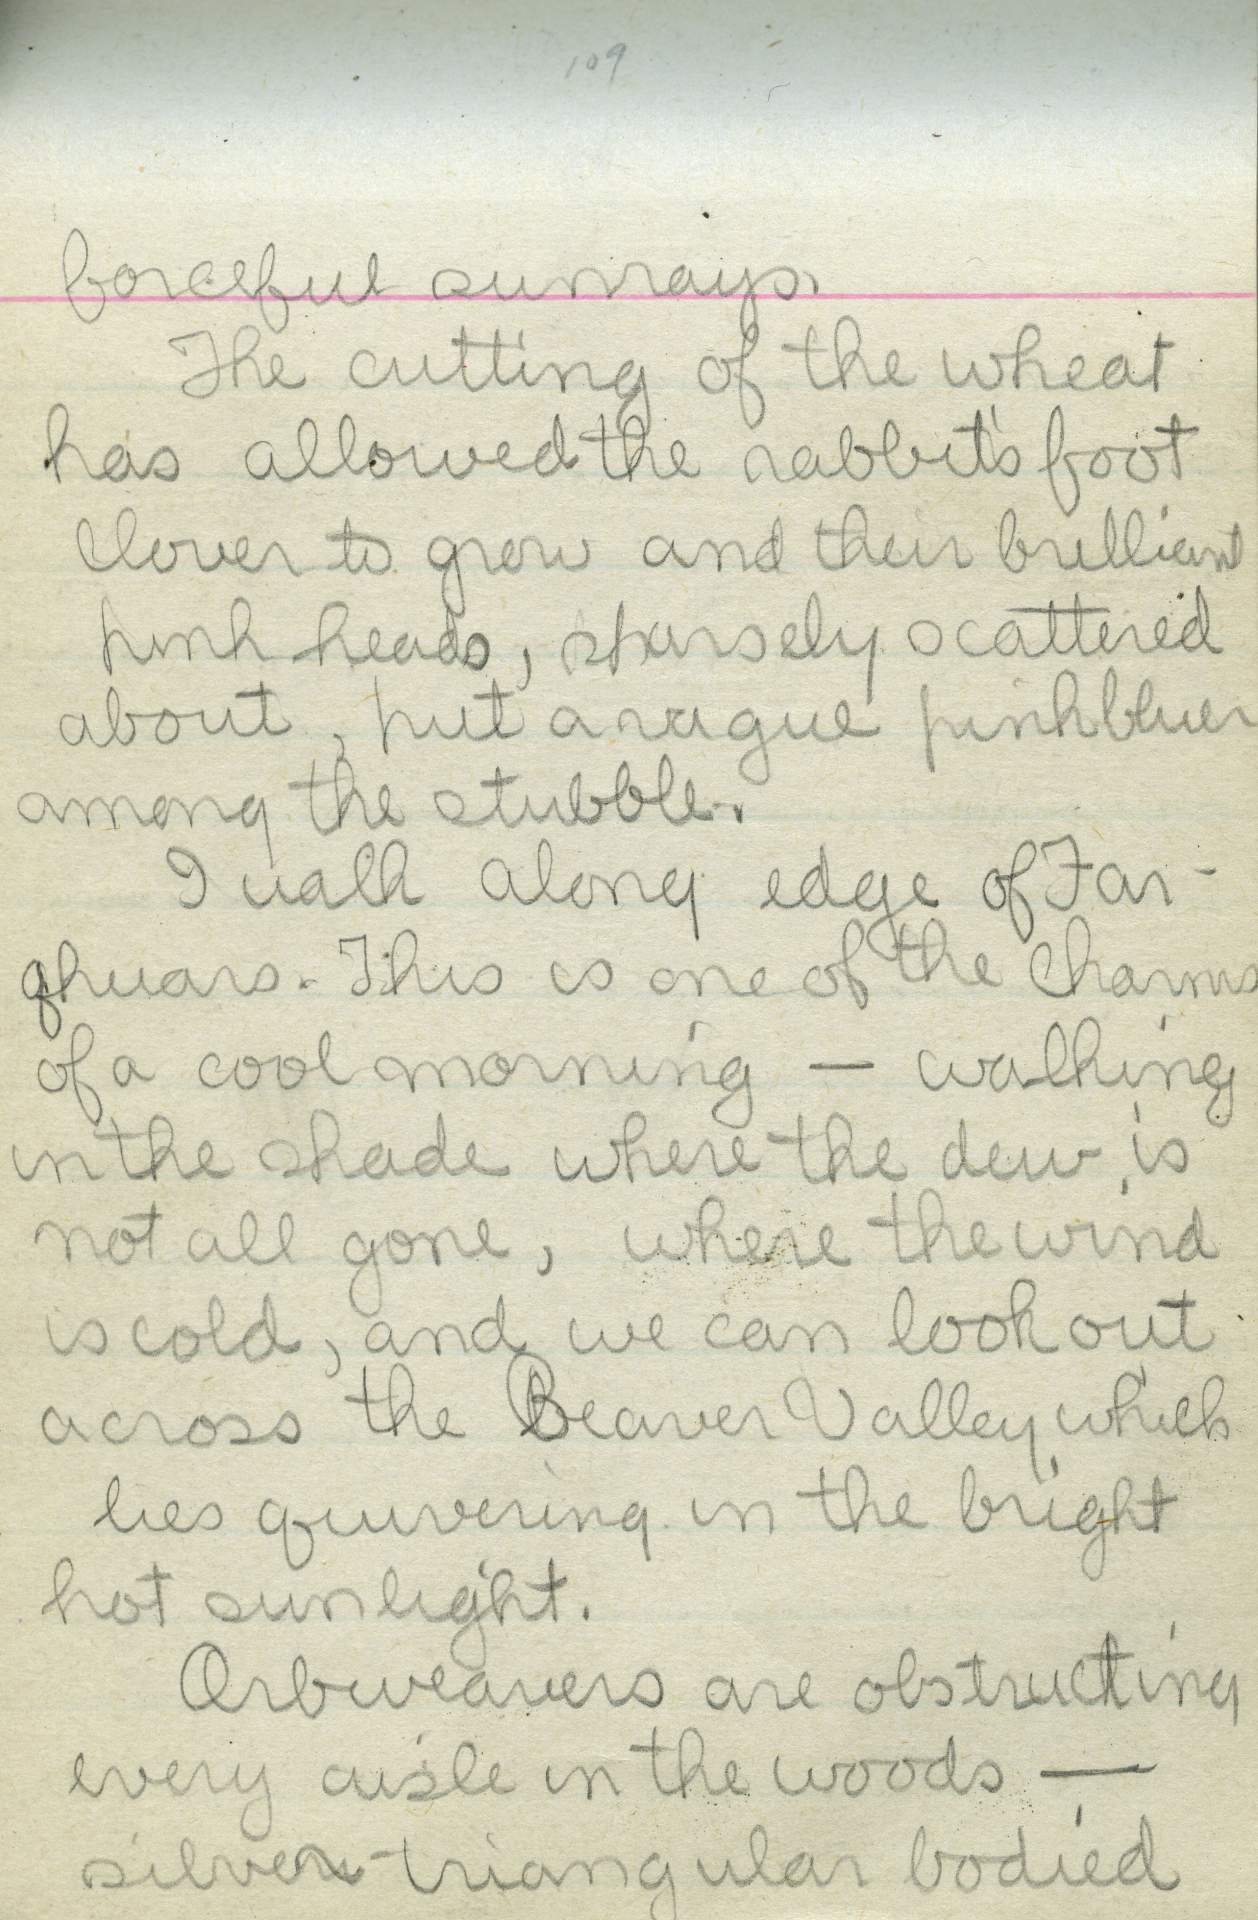 109
forceful sunrays.
The cutting of the wheat
has allowed the rabbit's foot
clover to grow and their brilliant
pink heads, sparsely scattered
about, put a vague pink blur
among the stubble.
I walk along edge of Far-
qhuars. This is one of the charms
of a cool morning — walking
in the shade where the dew is
not all gone, where the wind
is cold, and we can look out
across the Beaver Valley which
lies quivering in the bright
hot sunlight.
Orbweavers are obstructing
every aisle in the woods —
silver triangular bodied